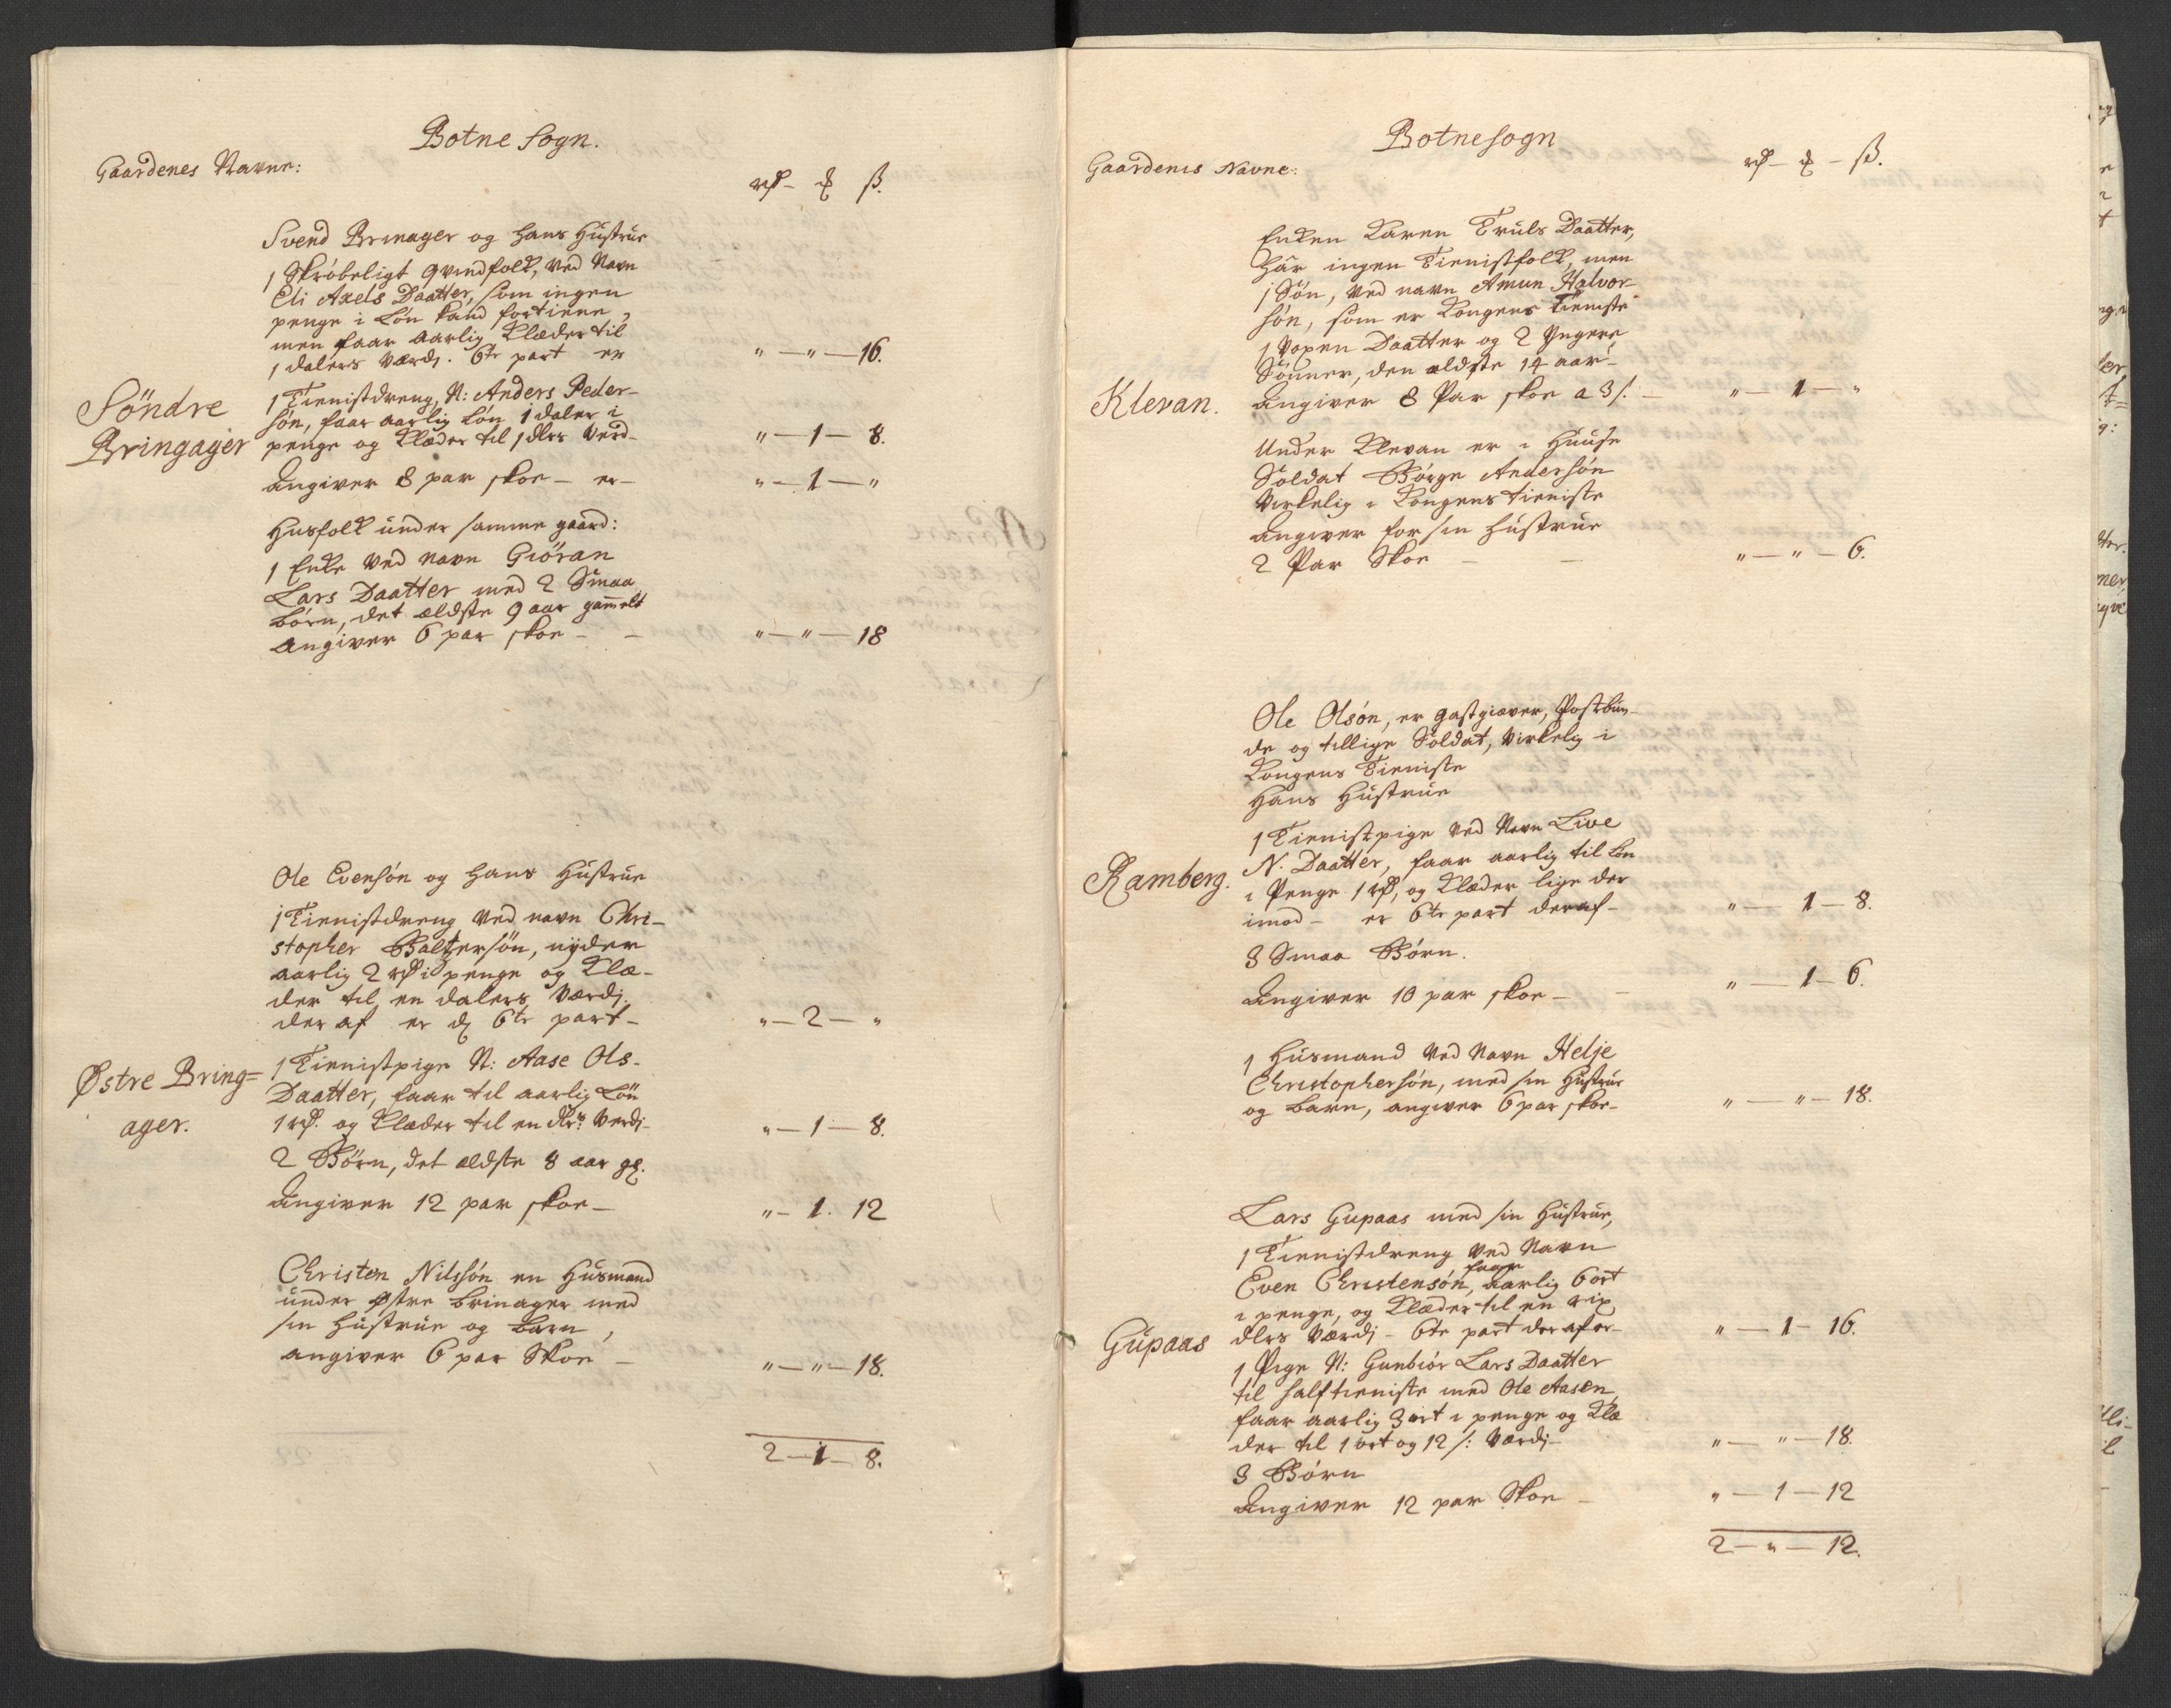 Botne Sogn.
Gaardenes Navne:
rd — ort ß.
Svend Brinager og hans Hustrue
1 Skröbeligt qvindfolk, ved Navn
Eli Axels Daatter, som ingen
penge i Lön kand fortiene,
men faar aarlig Klæder til
1 dalers Værdj. 6te part er
" — " — 16.
Söndre
Bringager
1 Tienistdreng, N: Anders Peder-
sön, faar aarlig Lön 1 daler i
penge og Klæder til 1 dlrs Verd-
" — 1 — 8.
Angiver 8 par skoe — er —
" — 1 — "
Husfolk under samme gaard:
1 Enke ved Navn Giöran
Lars Daatter med 2 Smaa
börn, det ældste 9 aar gammelt
angiver 6 par skoe —
" — " — 18
Ole Evensön og hans Hustrue
1 Tienistdreng ved navn Chri-
stopher Baltzersön, nyder
aarlig 2 rd i penge og Klæ-
der til en dalers Værdj.
der af er d 6te part —
" — 2 — "
Østre Bring=
ager.
1 Tienistpige N: Aase Ols-
Daatter, faar til aarlig Lön
1 rd. og Klæder til en dlrs Verdj —
" — 1 — 8.
2 Börn, det ældste 8 aar gl.
Angiver 12 par skoe —
" — 1. 12
Christen Nilssön en Husmand
under Østre Brinager med
sin Hustrue og barn,
angiver 6 par Skoe —
" — " — 18.
2 — 1 — 8.
Botne Sogn
Gaardenes Navne:
rd — ort — ß.
Enken Karen Truls Daatter,
har ingen Tienistfolk, men
1 Sön, ved navn Amun Halvor-
sön, som er Kongens Tieniste
1 Voxen Daatter og 2 Yngere
Sönner, den ældste 14 aar —
Klevan.
Angiver 8 Par skoe a 3 ß. —
" — 1 — "
Under Klevan er i Huuse
Soldat Börge Andersön
Virkelig i Kongens tieniste
Angiver for sin Hustrue
2 Par Skoe —
" — " — 6.
Ole Olsön, er gastgiæver, Postbun-
de og tillige Soldat, Virkelig i
Kongens Tieniste
Hans Hustrue
1 Tienistpige ved Navn Live
Ramberg.
N. Daatter, faar aarlig til Lön
i Penge 1 rd, og Klæder lige der
imod — er 6te part deraf —
" — 1 — 8.
3 Smaa Börn.
Angiver 10 par skoe —
" — 1 — 6.
1 Husmand ved Navn Helje
Christophersön, med sin Hustrue
og barn, angiver 6 par skoe —
" — " — 18.
Lars Gupaas med sin Hustrue,
1 Tienistdreng ved Navn
Even Christensön, faar aarlig 6 ort
i penge, og Klæder til en rix
Gupaas
dlrs Værdj — 6te part der af er —
" — 1 — 16.
1 Pige N: Gunbiör Lars Daatter
til half tieniste med Ole Aasen,
faar aarlig 3 ort i penge og Klæ
der til 1 ort og 12 ß: Værdj —
" — " — 18.
3 Börn
Angiver 12 par Skoe —
" — 1 — 12
2 — " — 12.